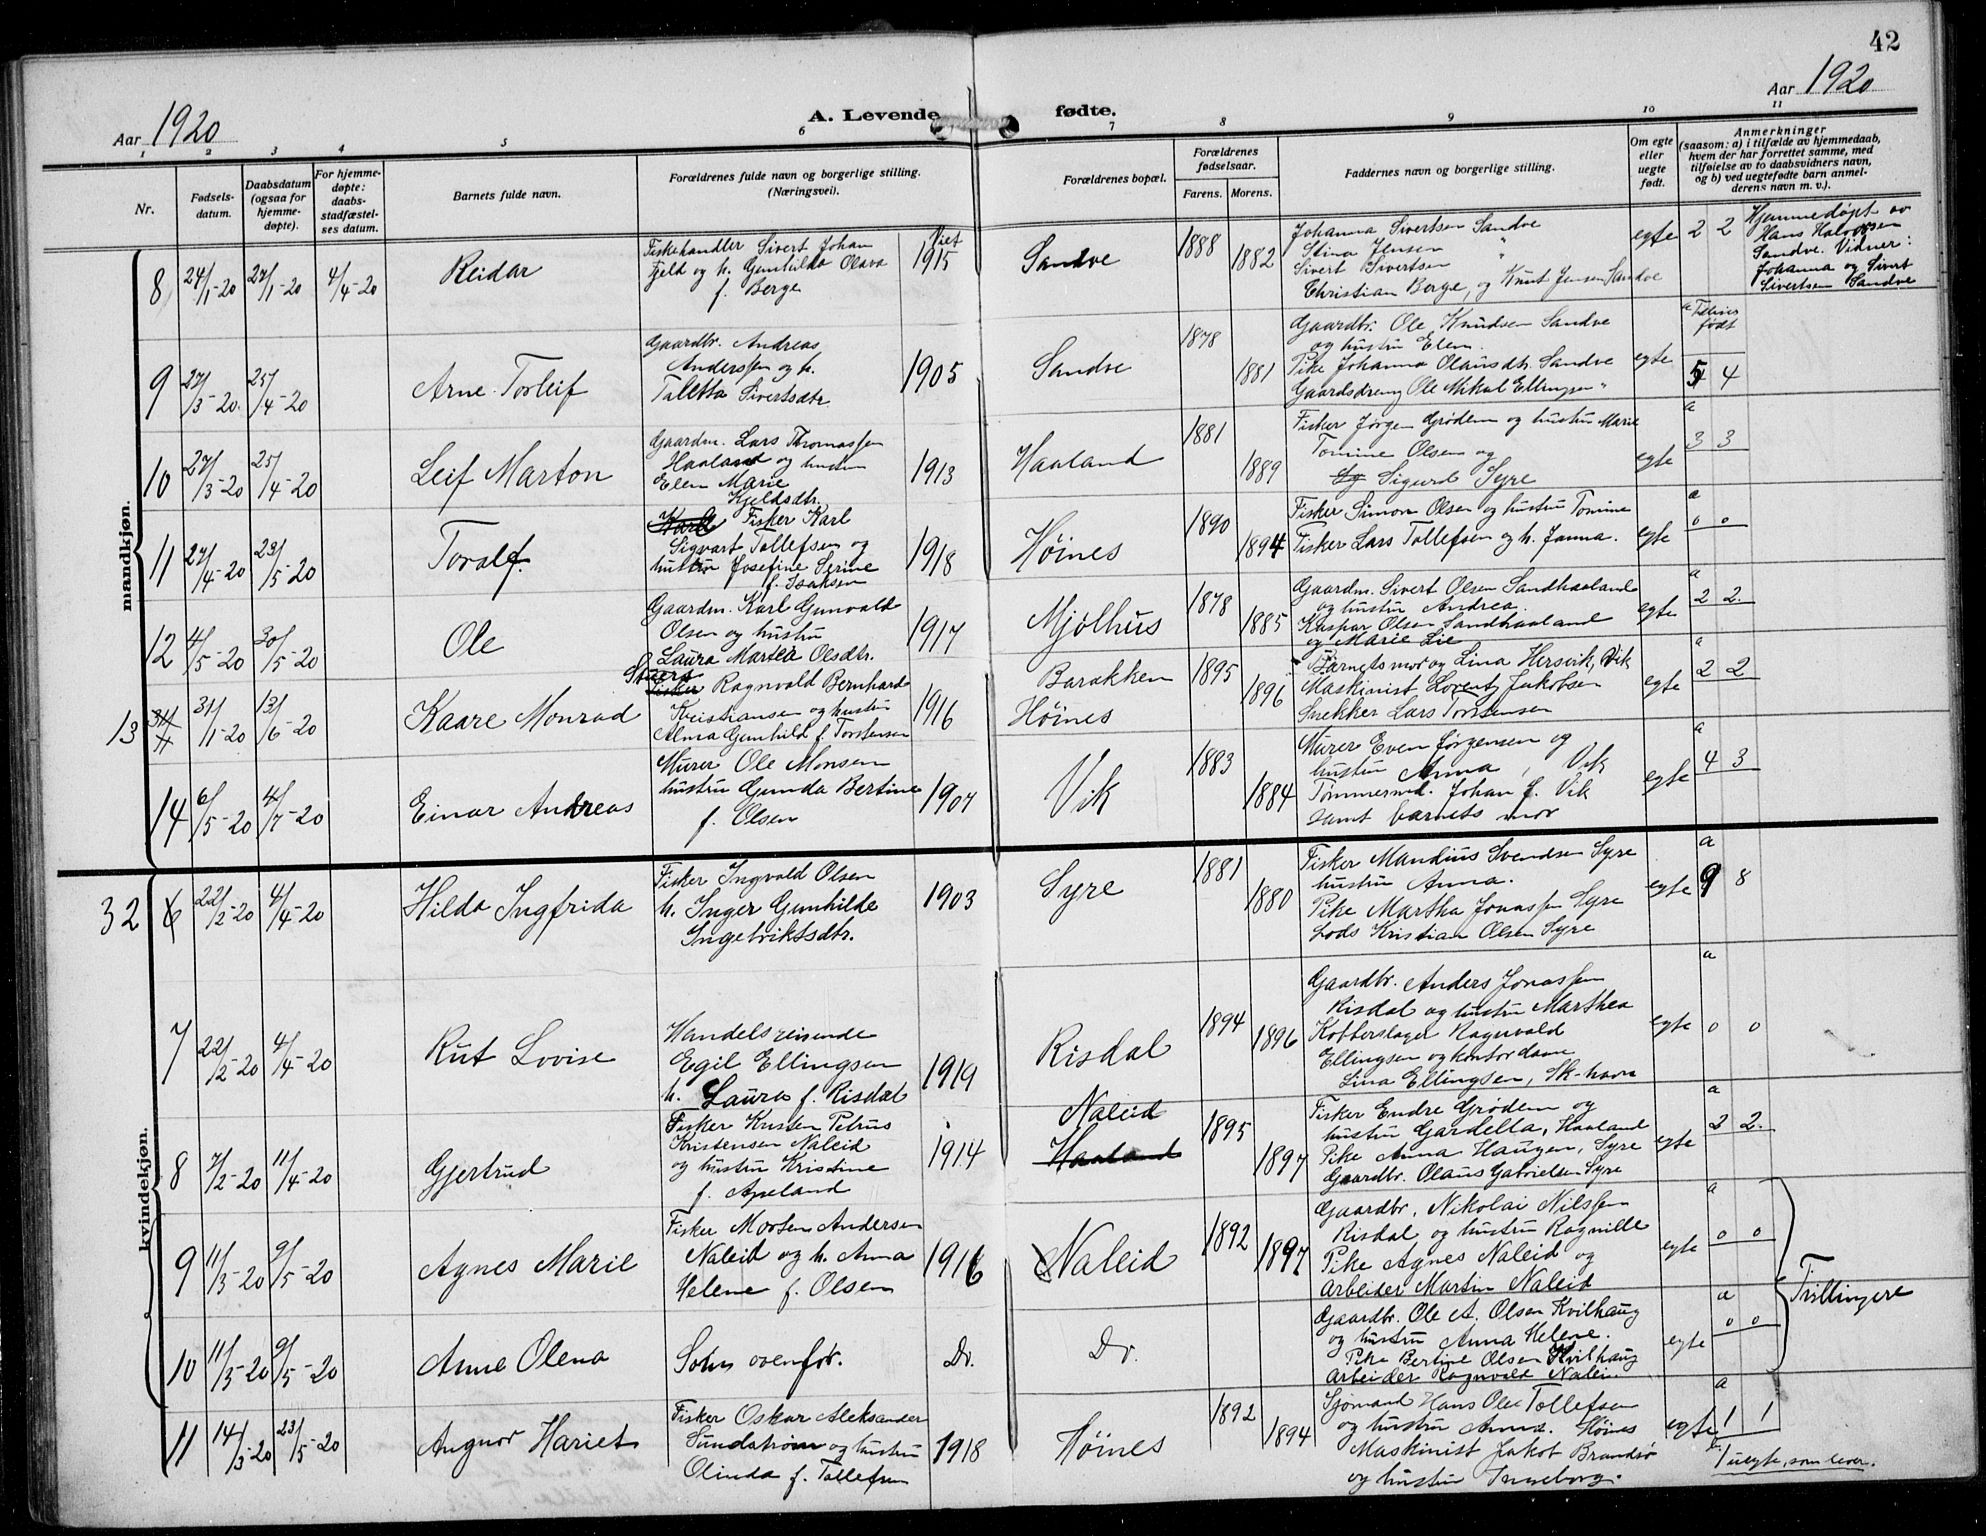 42
Aar 1920
A. Levende fødte.
Aar 1920
1 2 3 4 5 6 7 8 9 10 11
Nr.
Fødsels-
datum.
Daabsdatum
(ogsaa for
hjemme-
døpte).
For hjemme-
døpte:
daabs-
stadfæstel-
ses datum.
Barnets fulde navn.
Forældrenes fulde navn og borgerlige stilling.
(Næringsvei).
Forældrenes bopæl.
Forældrenes
fødselsaar.
Farens. Morens.
Faddernes navn og borgerlige stilling.
Om egte
eller
uegte
født.
Anmerkninger
(saasom: a) i tilfælde av hjemmedaab,
hvem der har forrettet samme, med
tilføielse av to daabsvidners navn,
og b) ved uegtefødte barn anmel-
derens navn m. v.).
mandkjøn.
8 24/1-20 27/1-20 4/4-20 Reidar
Fiskehandler Sivert Johan
Fjeld og h. Gunhilda Olava
f. Berge
Viet
1915
Sandve 1888 1882
Johanna Sivertsen Sandve
Stina Jensen "
Sivert Sivertsen "
Christian Berge, og Knut Jensen Sandve
egte 2 2
Hjemmedøpt av
Hans Halvorsen
Sandve. Vidner:
Johanna og Sivert
Sivertsen Sandve
9 27/3-20. 25/4-20 Arne Torleif
Gaardbr. Andreas
Anderssen og h.
Taletta Sivertsdtr.
1905
Sandve 1878 1881
Gaardbr. Ole Knudsen Sandve
og hustru Elen.
Pike Johanna Olausdtr. Sandve
Gaardsdreng Ole Mikal Ellingsen "
egte
født
5 4
10 27/3-20 25/4-20 Leif Marton
Gaardm. Lars Thomassen
Haaland og hustru
Elen Marie
Kjeldsdtr.
1913
Haaland 1881 1889
Fisker Jørgen Grødem og hustru Marie
Tomine Olsen og
Sigurd Syre
egte a 3 3
11 27/4-20 23/5-20 Toralf.
Karl Fisker Karl
Sigvart Tollefsen og
hustru Josefine Serine
f. Isaksen
1918
Høines 1890 1894
Fisker Simon Olsen og hustru Tomine
Fisker Lars Tollefsen og h. Janna.
egte a 0 0
12 4/5-20 30/5-20 Ole
Gaardm. Karl Gunvald
Olsen og hustru
Laura Martea Olsdtr.
1917
Mjølhus 1878 1885
Gaardm. Sivert Olsen Sandhaaland
og hustru Andrea.
Kaspar Olsen Sandhaaland
og Marie Lie
egte a 2 2.
13 31/1-20 13/6-20 Kaare Monrad
Fisker Ragnvald Bernhard
Kristiansen og hustru
Alma Gunhild f. Torstensen
1916
Barakken
Høines
1895 1896
Barnets mor og Lina Hersvik, Vik
Maskinist Lorentz Jakobsen
Snekker Lars Torstensen
egte a 2 2
14 6/5-20 4/7-20 Einar Andreas
Murer Ole Monsen
hustru Gunda Bertine
f. Olsen
1907
Vik 1883 1884
Murer Even Jørgensen og
hustru Anna, Vik
Tømmermd. Johan f. Vik
samt barnets mor
egte a 4 3
kvindekjøn.
32 6 22/2-20 4/4-20 Hilda Ingfrida
Fisker Ingvald Olsen
h. Inger Gunhilde
Ingebriktsdtr.
1903
Syre 1881 1880
Fisker Mandius Svendsen Syre
hustru Anna.
Pike Martha Jonassen Syre
Lods Kristian Olsen Syre
egte a 9 8
7 22/2-20 4/4-20 Rut Lovise
Handelsreisende
Egil Ellingsen
h. Laura f. Risdal
1919
Risdal 1894 1896
Gaardbr. Anders Jonassen
Risdal og hustru Marthea
Kobberslager Ragnvald
Ellingsen og kontordame
Lina Ellingsen, Sk-havn
egte a 0 0
8 7/2-20 11/4-20 Gjertrud
Fisker Kristen Petrus
Kristensen Naleid
og hustru Kristine
f. Apeland
1914
Naleid
Haaland
1895 1897
Fisker Endre Grødem og
hustru Gardella, Haaland
Pike Anna Haugen, Syre
Gaardbr. Olaus Gabrielsen Syre
egte a 2 2.
9 11/3-20 9/5-20 Agnes Marie
Fisker Morten Andersen
Naleid og h. Anna
Helene f. Olsen
1916
Naleid 1892 1897
Gaardbr. Nikolai Nilssen
Risdal, og hustru Ragnille
Pike Agnes Naleid og
Arbeider Martin Naleid
egte a 0 0
Tvillinger
10 11/3-20 9/5-20 Anne Olena
Som ovenfor.
Do.
Do.
Gaardbr. Ole A. Olsen Kvilhaug
og hustru Anna Helene.
Pike Bertine Olsen Kvilhaug
Arbeider Ragnvald Naleid
egte a 0 0
11 14/3-20 23/5-20 Angnor Hariet
Fisker Oskar Aleksander
Sundstrøm og hustru
Olinda f. Tollefsen
1918
Høines 1892 1894
Sjømand Hans Olai Tollefsen
og hustru Anna. Høines
Maskinist Jakob Brandsø
og hustru Inneborg.
egte a 1 1
1 uegte, som lever.